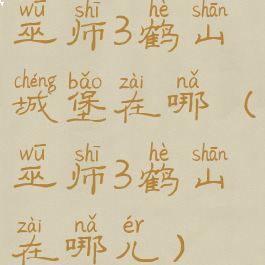 wū shī hè shān
巫师3鹤山
chéng bǎo zài nǎ
城堡在哪(
wū shī hè shān
巫师3鹤山
zài nǎ ér
在哪儿)